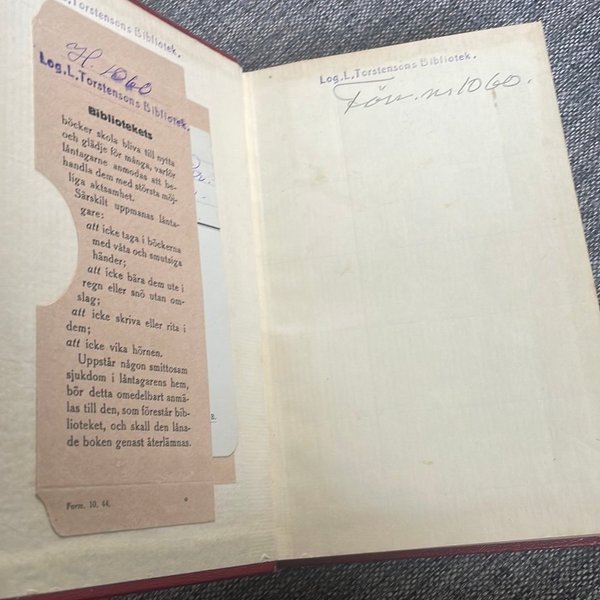 Torstensons Bibliotek.
H. 1060
Log. L. Torstensons Bibliotek.
Bibliotekets
böcker skola bliva till nytta
och glädje för många, varför
låntagarne anmodas att be-
handla dem med största möj-
liga aktsamhet.
Särskilt uppmanas lånta-
gare:
att icke taga i böckerna
med våta och smutsiga
händer;
att icke bära dem ute i
regn eller snö utan om-
slag;
att icke skriva eller rita i
dem;
att icke vika hörnen.
Uppstår någon smittosam
sjukdom i låntagarens hem,
bör detta omedelbart anmä-
las till den, som förestår bib-
lioteket, och skall den låna-
de boken genast återlämnas.
Form. 10. 44.
Log. L. Torstensons Bibliotek.
Förv. nr 1060.